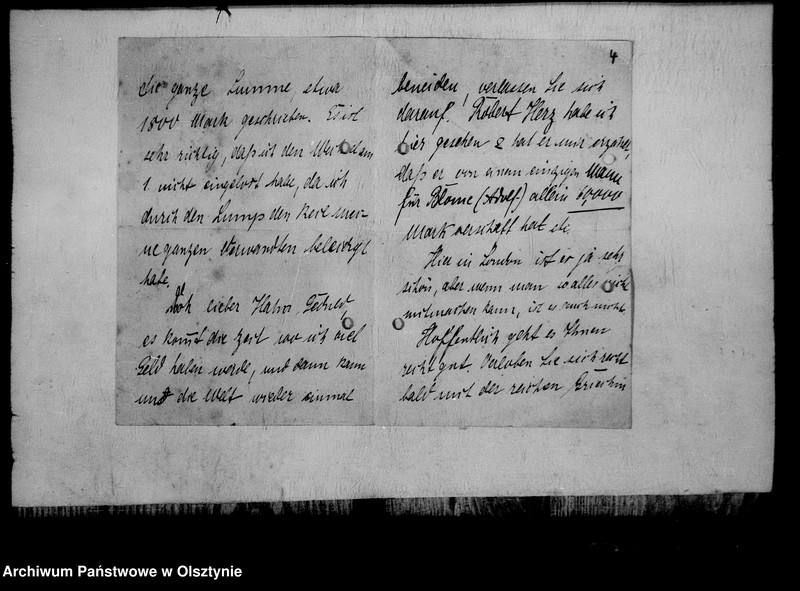 die ganze Summe, etwa
1800 Mark geschrieben. Es ist
sehr richtig, daß ich den Wechsel am
1. nicht eingelöst habe, da ich
durch den Lump den Kerl mei-
ne ganzen Verwandten
habe.
Doch lieber Hahn, Geduld,
es kommt die Zeit wo ich viel
Geld haben werde, und dann kann
die Welt wieder einmal
4
beneiden, verlassen Sie sich
darauf. Robert Herz habe ich
hier gesehen & hat er mir erzählt,
daß er von einem einzigen Mann
für Blome (Adolf) allein 60,000
Mark verschafft hat etc
Hier in London ist es ja sehr
schön, aber wenn man so alles nicht
mitmachen kann, ist es auch nichts
Hoffentlich geht es Ihnen
recht gut. Verloben Sie sich recht
bald mit der reichen Griechin
Archiwum Państwowe w Olsztynie